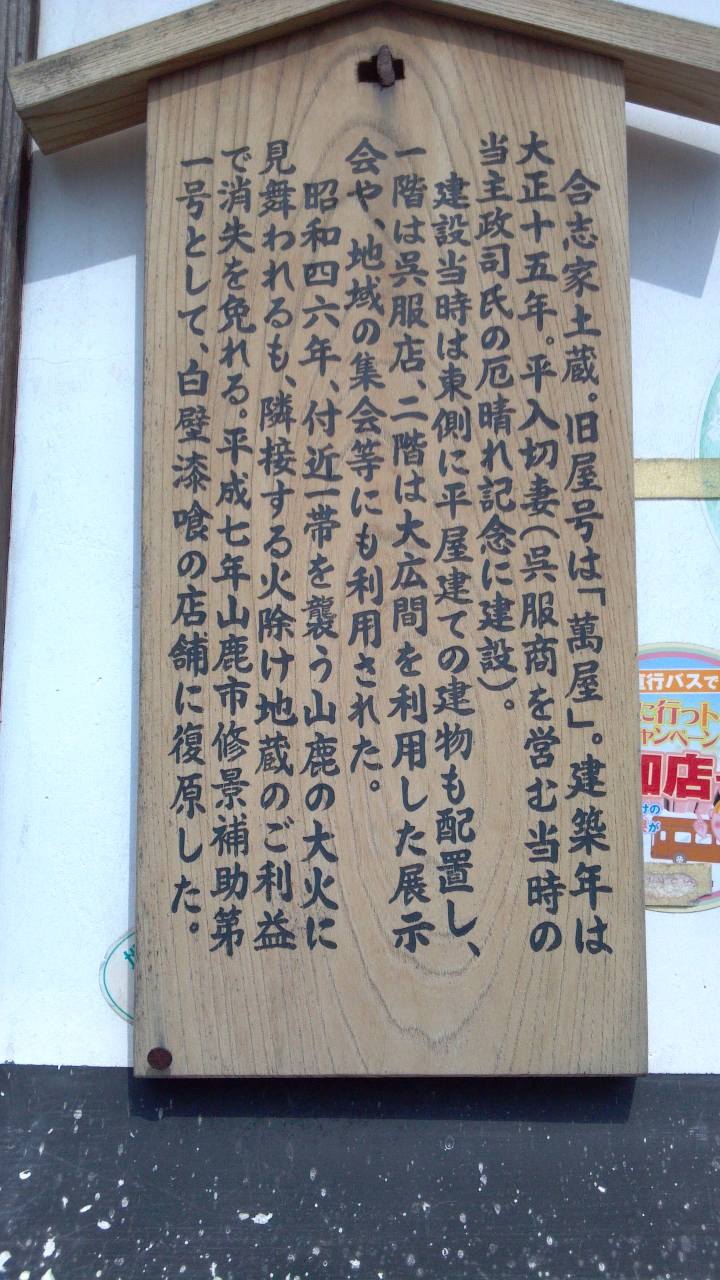 合志家土蔵。旧屋号は「萬屋」。建築年は
大正十五年。平入切妻(呉服商を営む当時の
当主政司氏の厄晴れ記念に建設)。
建設当時は東側に平屋建ての建物も配置し、
一階は呉服店、二階は大広間を利用した展示
会や、地域の集会等にも利用された。
昭和四六年、付近一帯を襲う山鹿の大火に
見舞われるも、隣接する火除け地蔵のご利益
で消失を免れる。平成七年山鹿市修景補助第
一号として、白壁漆喰の店舗に復原した。
行バスで
に行っト
ャンペーン
店